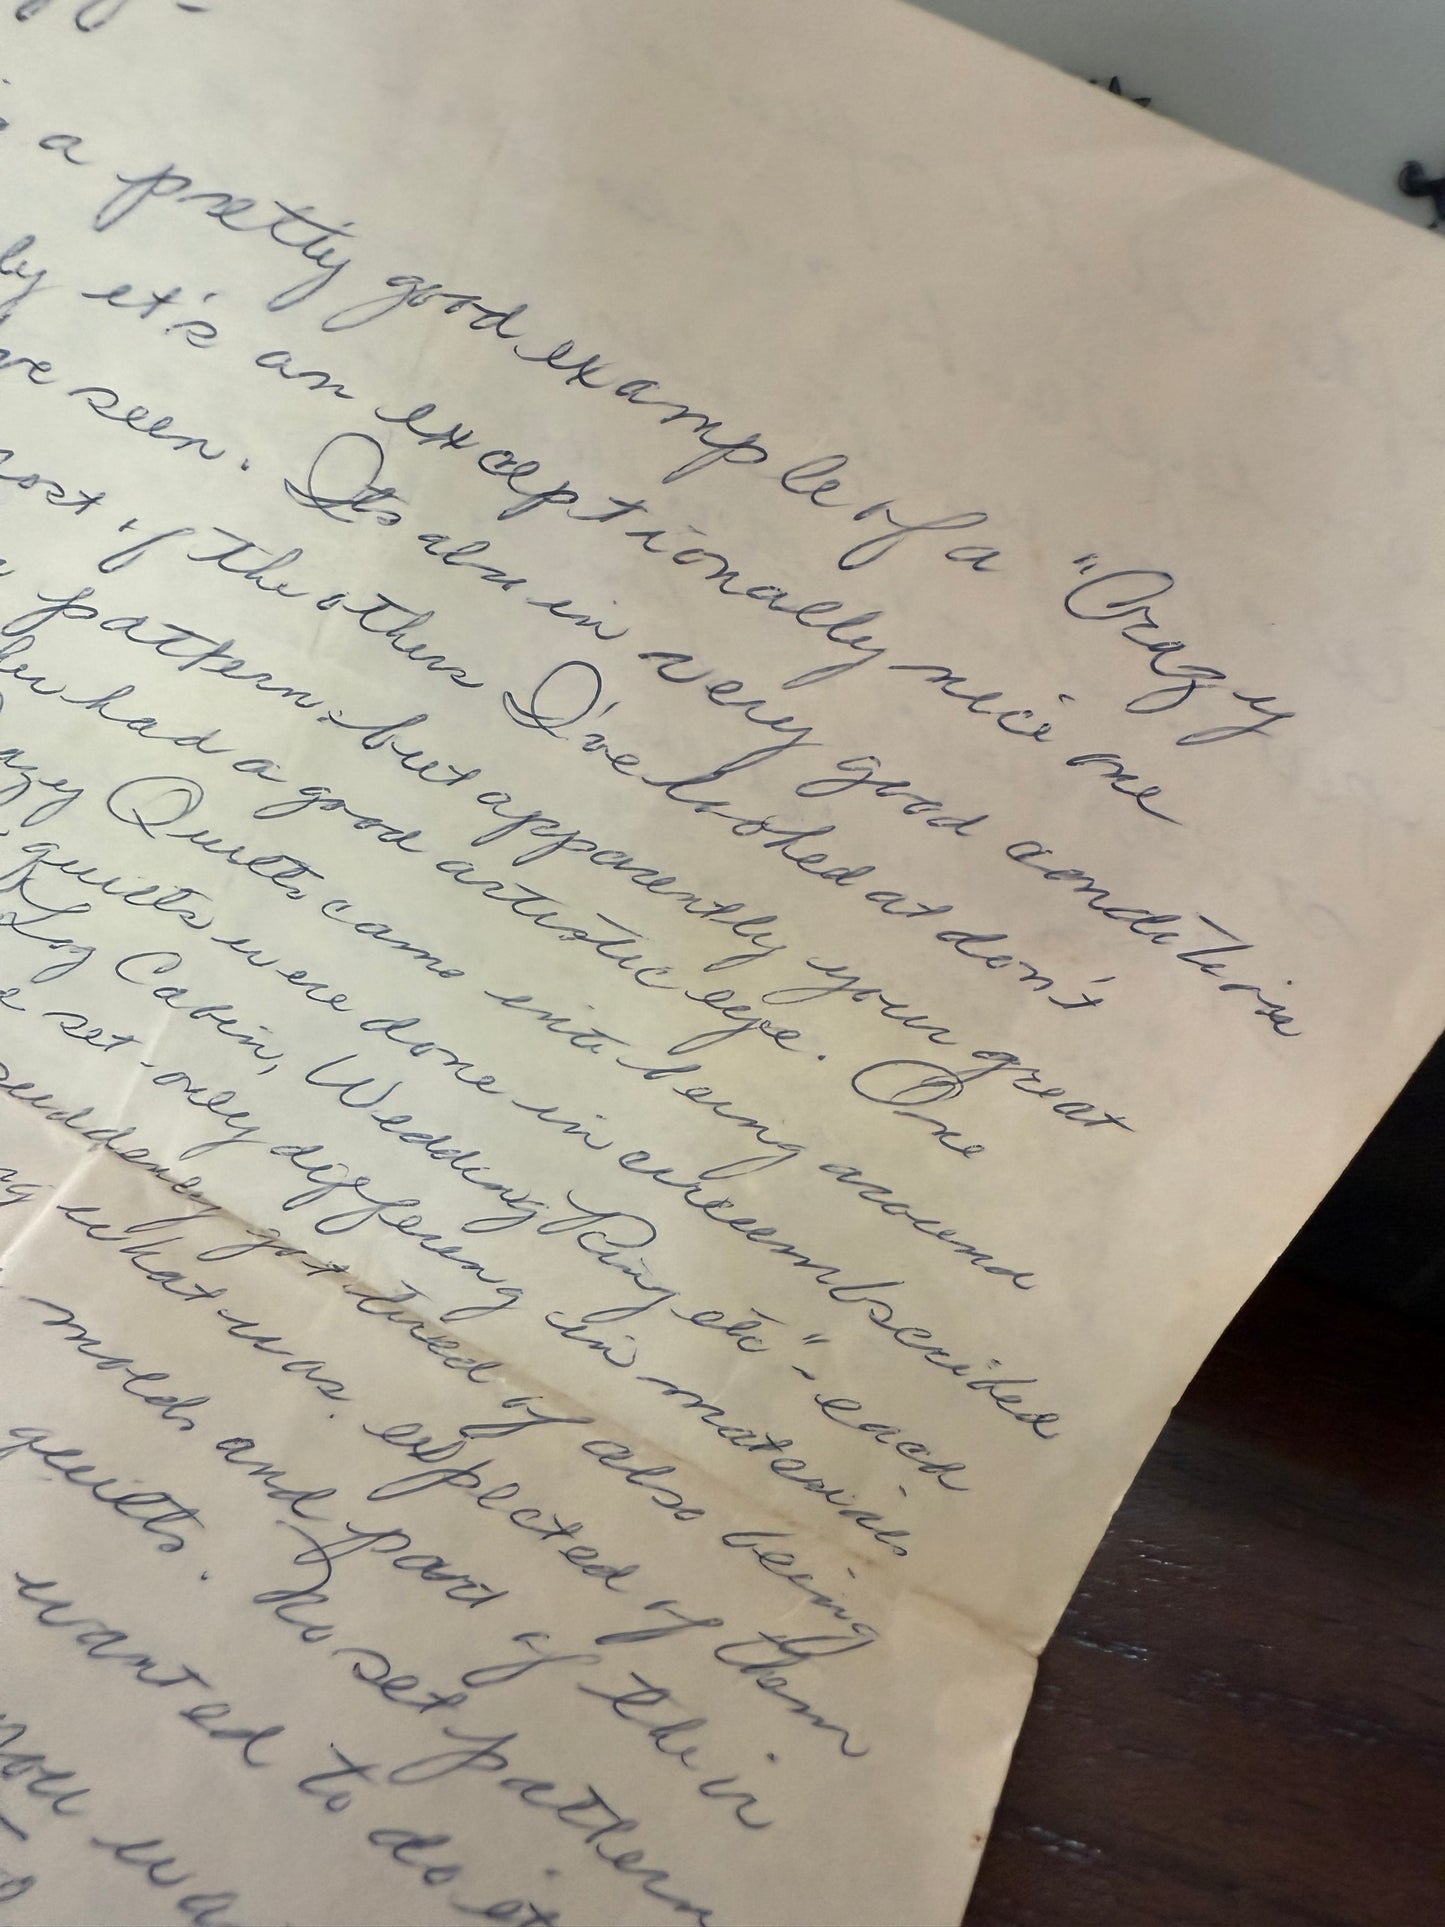 a pretty good example of a "Crazy
it's an exceptionally nice one
seen. Its also in very good condition
most of the others I've looked at don't
pattern - but apparently your great
had a good artistic eye. One
Quilts came into being around
quilts were done in circumbscribed
Log Cabin, Wedding Ring etc" - each
set - only differeng in materials
suddenly got tired of also being
what was expected of them
molds and part of their
quilts. No set pattern
wanted to do it
you wa